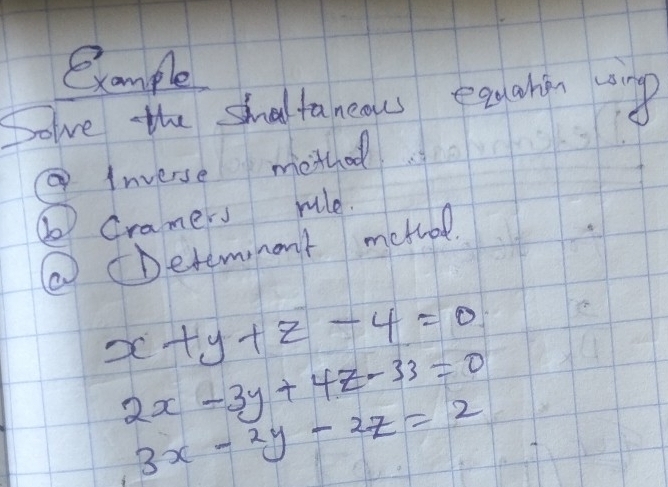 Example
Solve the Simaltaneous equation using
(a) Inverse method.
(b) Cramers rule.
(c) Determinant method.
x + y + z - 4 = 0
2x - 3y + 4z - 33 = 0
3x - 2y - 2z = 2